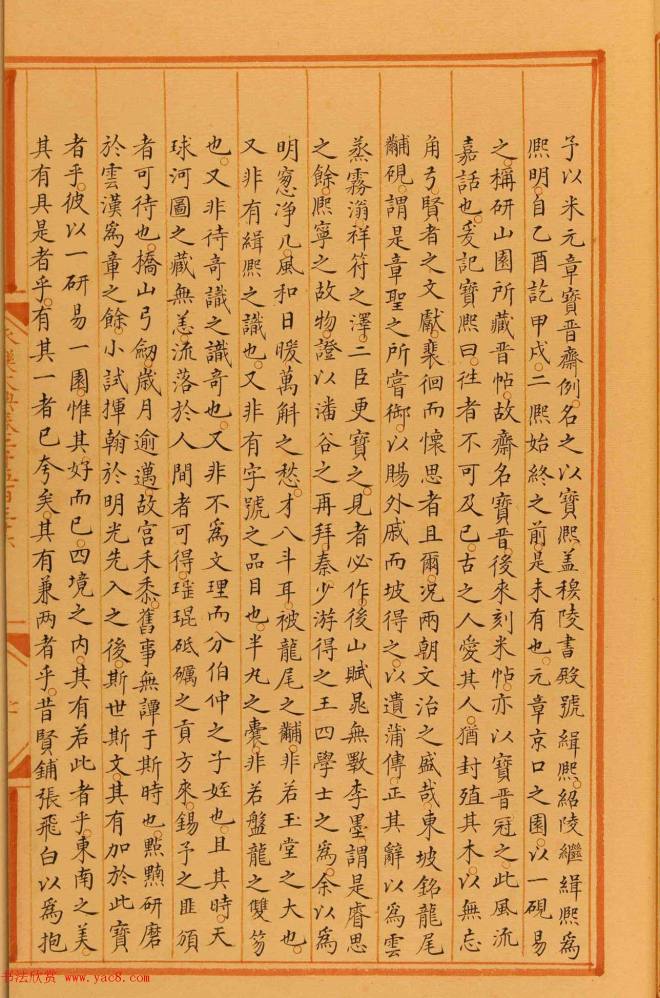 予以米元章寶晉齋例。名之以寶熈。盖穆陵書殿號緝熈。紹陵繼緝熈爲
熈明。自乙酉訖甲戌。二熈始終之前。是未有也。元章京口之園。以一硯易
之。稱研山園所藏晋帖。故齋名寶晋。後來刻米帖。亦以寶晋冠之。此風流
嘉話也。爰記寶熈曰。徃者不可及已。古之人愛其人。猶封殖其木。以無忘
角弓。賢者之文獻。裴徊而懷思者且爾。况兩朝文治之盛哉。東坡銘龍尾
黼硯。謂是章聖之所嘗御。以賜外戚而坡得之。以遺蒲傳正。其辭以爲雲
蒸霧滃祥符之澤。二臣更寶之。見者必作。後山賦晁無斁李墨。謂是睿思
之餘。熈寧之故物。證以潘谷之再拜。秦少游得之王四學士之爲。余以爲
明窻净几。風和日暖。萬斛之愁。才八斗耳。被龍尾之黼。非若玉堂之大也。
又非有緝熈之識也。又非有字號之品目也。半丸之囊。非若盤龍之雙笏
也。又非待奇識之識奇也。又非不爲文理而分伯仲之子姪也。且其時。天
球河圖之藏無恙。流落於人間者可得。瑤琨砥礪之貢方來。錫予之匪頒
者可待也。橋山弓劒。歲月逾邁。故宫禾黍。舊事無譚于斯時也。㸃䵝研磨
於雲漢爲章之餘。小試揮翰於明光先入之後。斯世斯文。其有加於此寶
者乎。彼以一研易一園。惟其好而已。四境之内。其有若此者乎。東南之美。
其有具是者乎。有其一者已夸矣。其有兼兩者乎。昔賢鋪張飛白以爲抱
书法欣赏 www.yac8.com